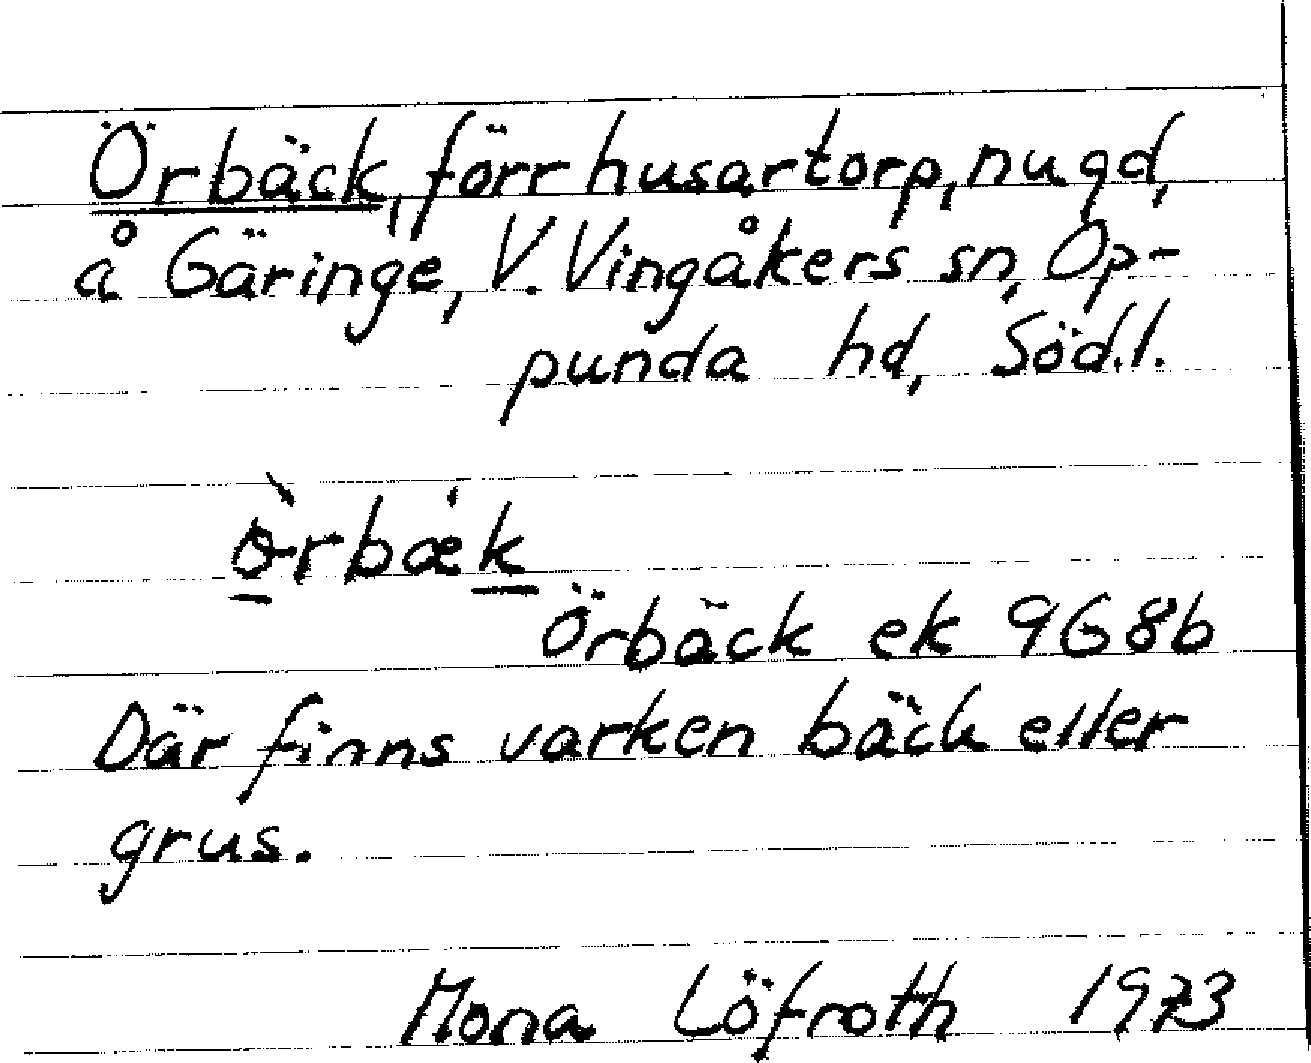 Örbäck, förr husartorp, nu gd,
å Gäringe, V. Vingåkers sn, Op-
punda hd, Söd.l.
ɵ̀rbæ̍k
Örbäck ek 9G8b
Där finns varken bäck eller
grus.
Mona Löfroth 1973